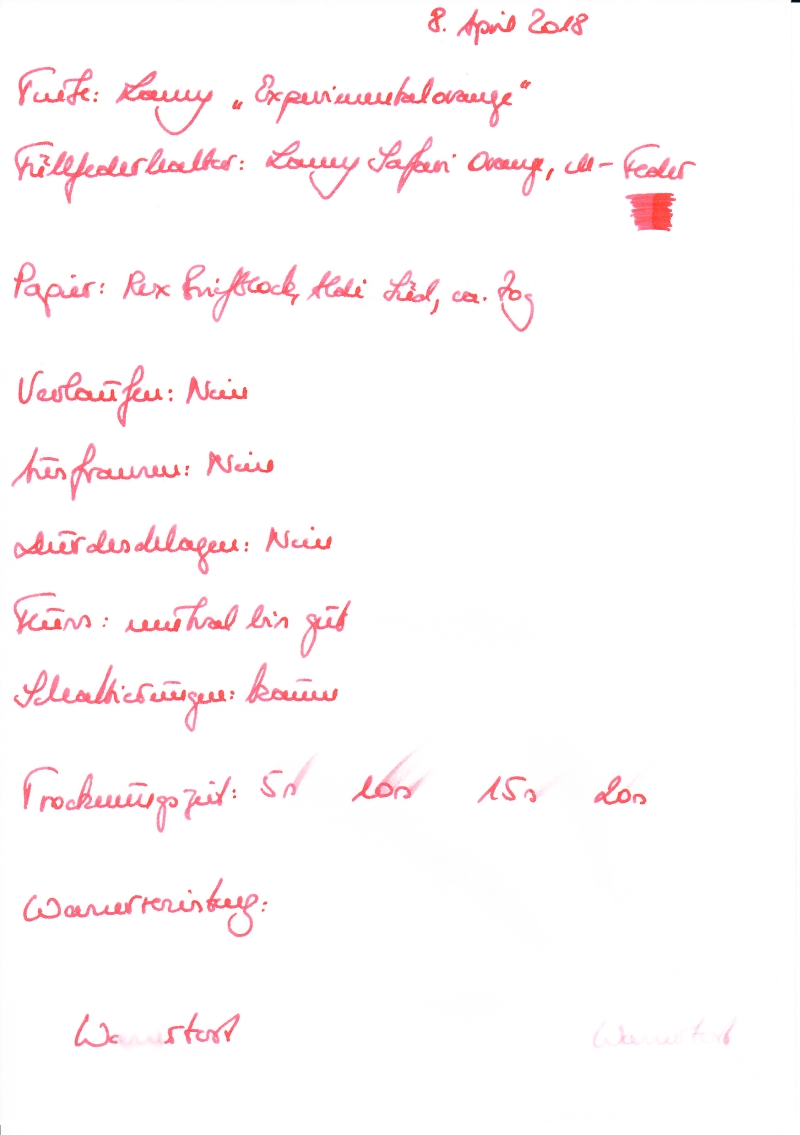 8. April 2018
Tinte: Lamy „Experimentalorange“
Füllfederhalter: Lamy Safari Orange, M-Feder
Papier: Rex Briefblock, Aldi Süd, ca. 70g
Verlaufen: Nein
Ausfransen: Nein
Durchschlagen: Nein
Fluss: neutral bis gut
Schattierungen: kaum
Trocknungszeit: 5s 10s 15s 20s
Wasserresistenz:
Wassertest Wassertest